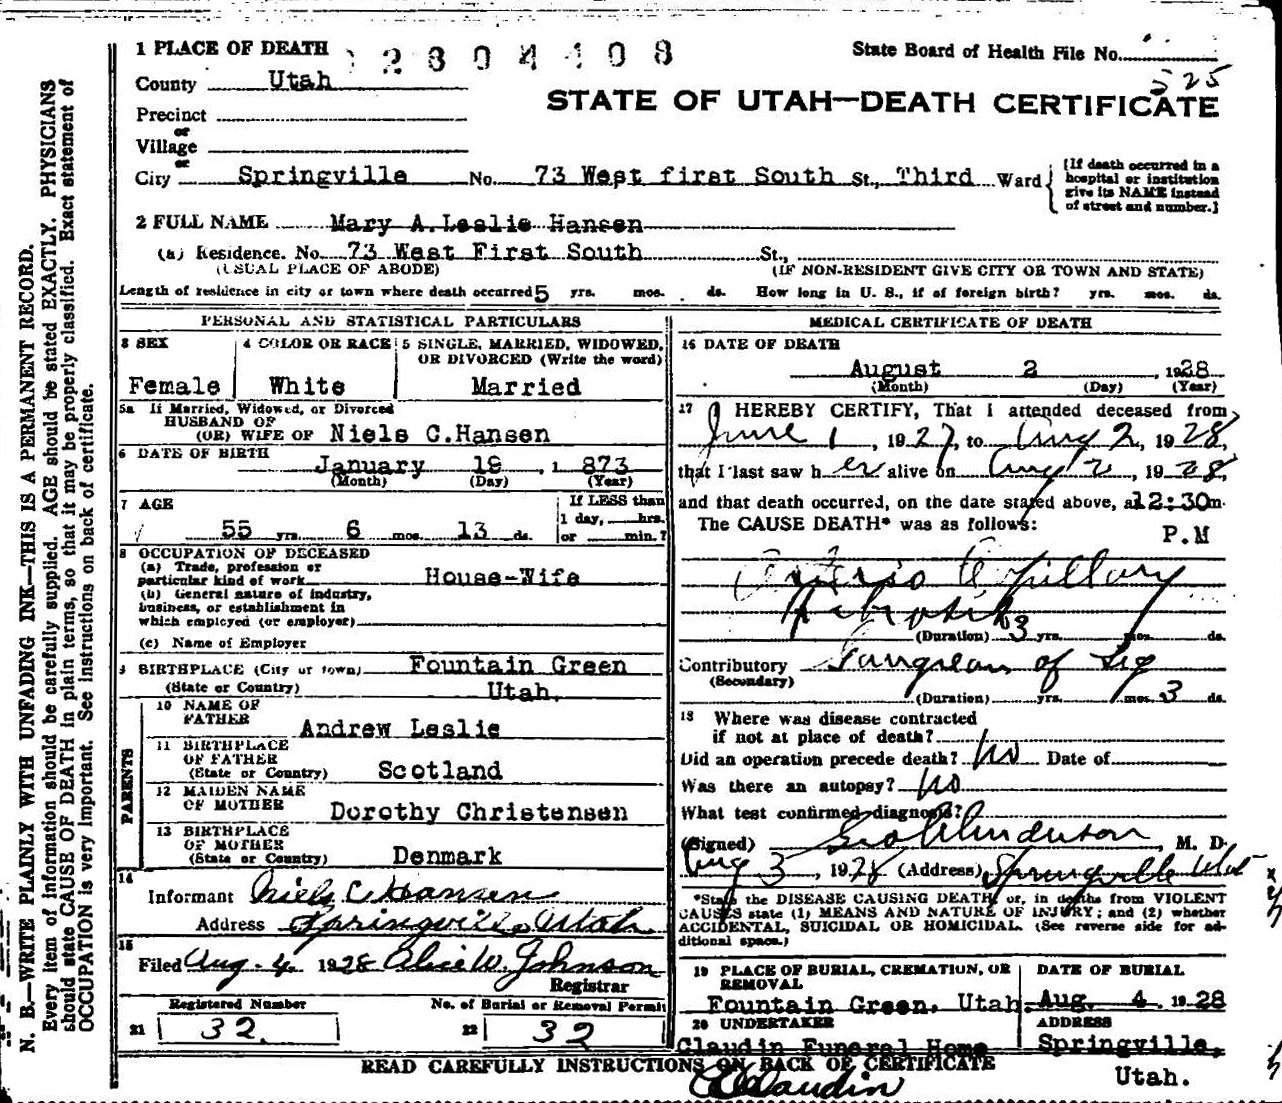 1 PLACE OF DEATH 2804408 State Board of Health File No.
525
County Utah
STATE OF UTAH—DEATH CERTIFICATE
Precinct
or
Village
or
City Springville No. 73 West first South St., Third Ward
[If death occurred in a
hospital or institution
give its NAME instead
of street and number.]
2 FULL NAME Mary A. Leslie Hansen
(a) Residence. No. 73 West First South St.,
(USUAL PLACE OF ABODE) (IF NON-RESIDENT GIVE CITY OR TOWN AND STATE)
Length of residence in city or town where death occurred 5 yrs. mos. ds. How long in U. S., if of foreign birth? yrs. mos. ds.
PERSONAL AND STATISTICAL PARTICULARS
3 SEX
Female
4 COLOR OR RACE
White
5 SINGLE, MARRIED, WIDOWED,
OR DIVORCED (Write the word)
Married
5a If Married, Widowed, or Divorced
HUSBAND OF
(OR) WIFE OF Niels C. Hansen
6 DATE OF BIRTH
January 19, 1 873
(Month) (Day) (Year)
7 AGE
55 yrs. 6 mos. 13 ds.
If LESS than
1 day, hrs.
or min.?
8 OCCUPATION OF DECEASED
(a) Trade, profession or
particular kind of work House-Wife
(b) General nature of industry,
business, or establishment in
which employed (or employer)
(c) Name of Employer
9 BIRTHPLACE (City or town) Fountain Green
(State or Country) Utah.
PARENTS
10 NAME OF
FATHER Andrew Leslie
11 BIRTHPLACE
OF FATHER
(State or Country) Scotland
12 MAIDEN NAME
OF MOTHER Dorothy Christensen
13 BIRTHPLACE
OF MOTHER
(State or Country) Denmark
14
Informant Niels C Hansen
Address Springville Utah
15
Filed Aug. 4 1928 Alice W. Johnson
Registrar
Registered Number No. of Burial or Removal Permit
21 32. 22 32
MEDICAL CERTIFICATE OF DEATH
16 DATE OF DEATH
August 2, 1928
(Month) (Day) (Year)
17 I HEREBY CERTIFY, That I attended deceased from
June 1, 1927, to Aug 2, 1928,
that I last saw her alive on Aug 2, 1928,
and that death occurred, on the date stated above, at 12:30 m.
The CAUSE DEATH* was as follows: P.M
Arterio Capillary
(Duration) 3 yrs. mos. ds.
Contributory Gangrean of Leg
(Secondary)
(Duration) yrs. mos. 3 ds.
18 Where was disease contracted
if not at place of death?
Did an operation precede death? No Date of
Was there an autopsy? No
What test confirmed diagnosis?
(Signed) Geo Anderson, M. D.
Aug 3, 1928 (Address) Springville Utah
*State the DISEASE CAUSING DEATH, or, in deaths from VIOLENT
CAUSES state (1) MEANS AND NATURE OF INJURY; and (2) whether
ACCIDENTAL, SUICIDAL OR HOMICIDAL. (See reverse side for ad-
ditional space.)
19 PLACE OF BURIAL, CREMATION, OR
REMOVAL
Fountain Green, Utah.
DATE OF BURIAL
Aug. 4 1928
20 UNDERTAKER
Claudin Funeral Home
ADDRESS
Springville,
Utah.
READ CAREFULLY INSTRUCTIONS ON BACK OF CERTIFICATE
Claudin
N. B.—WRITE PLAINLY WITH UNFADING INK—THIS IS A PERMANENT RECORD.
Every item of information should be carefully supplied. AGE should be stated EXACTLY. PHYSICIANS
should state CAUSE OF DEATH in plain terms, so that it may be properly classified. Exact statement of
OCCUPATION is very important. See instructions on back of certificate.